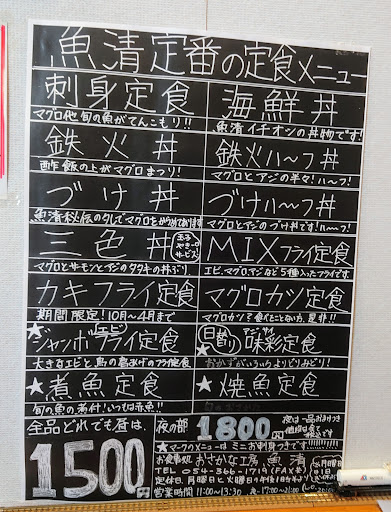 魚清定番の定食メニュー
刺身定食
マグロ他旬の魚がてんこもり!!
海鮮丼
魚清イチオシの丼物です!
鉄火丼
酢飯の上がマグロまつり!
鉄火ハーフ丼
マグロとアジの半々!ハーフ!
づけ丼
魚清秘伝のタレでマグロをからめてあります
づけハーフ丼
マグロとアジのづけ丼です!ハーフ!
三色丼
サービス
マグロとサーモンとアジのタタキの丼ぶり
MIXフライ定食
エビ、マグロ、アジなど5種入ったフライです
カキフライ定食
期間限定!10月〜4月まで
マグロカツ定食
マグロカツ?食べたことない方、是非!!
★ジャンボエビフライ定食
大きなエビと鳥の唐あげのフライ定食
日替り味彩定食
アジサイ
おかずがいろいろよりどりみどり!
★煮魚定食
旬の魚の煮付!いつもは赤魚!!
★焼魚定食
全品どれでも昼は、
1500円
夜の部1800円
夜は一品おまけつき
★マークのメニューはミニお刺身つきです!!!!
お食事処 おさかな工房 魚清
TEL 054-366-1719(FAX兼)
定休日 月曜日と火曜日
営業時間 11:00〜13:30 夜 17:00〜21:00